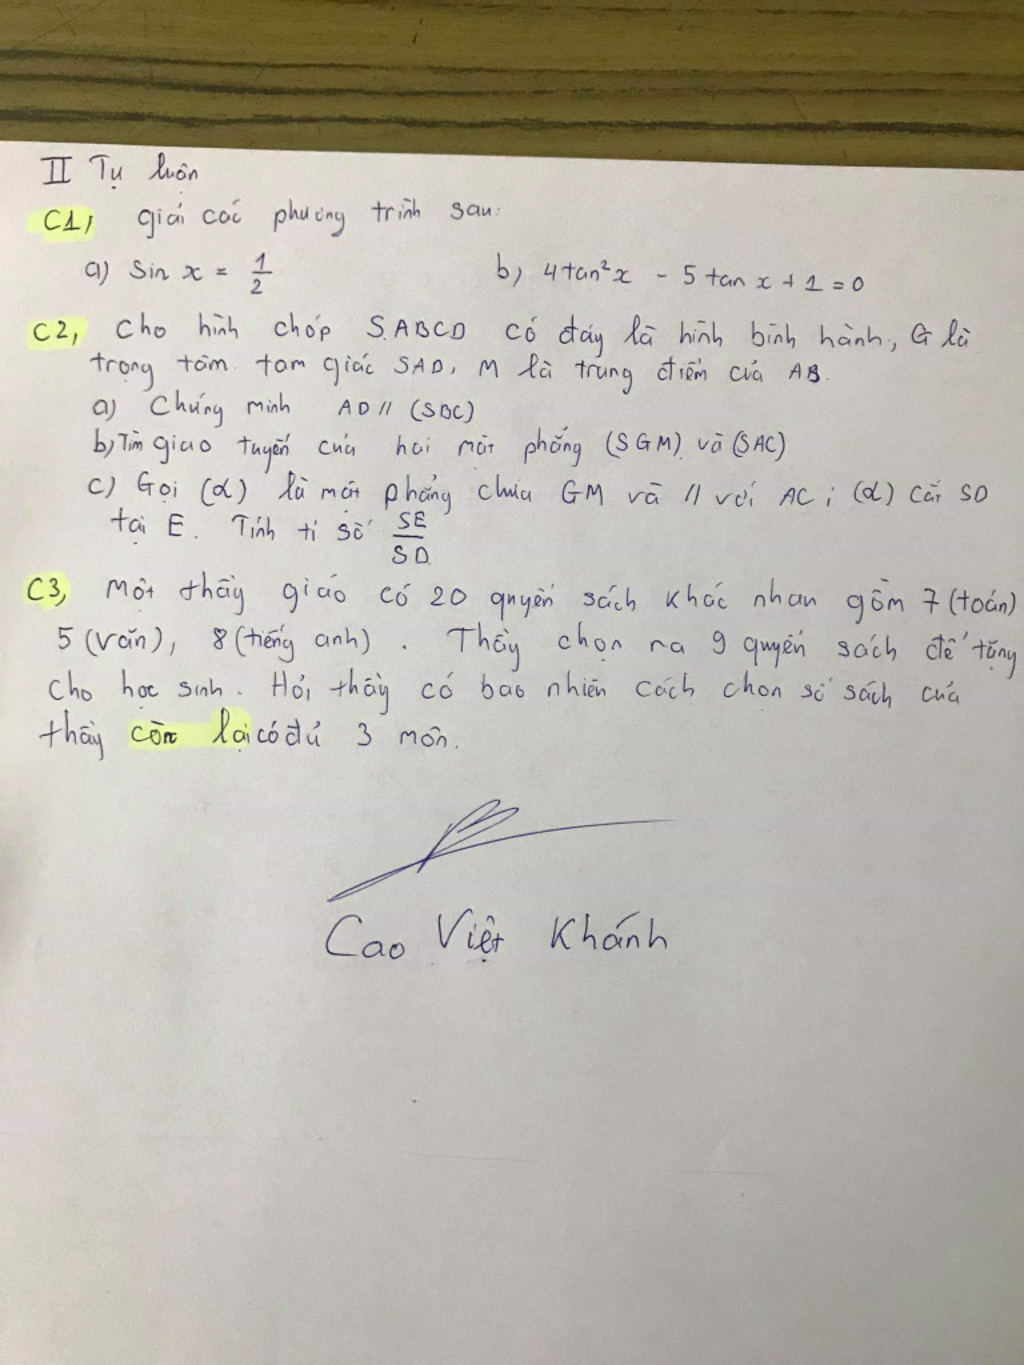 II Tự luận
C1, giải các phương trình sau:
a) sin x = 1/2 b, 4tan²x - 5 tan x + 1 = 0
C2, Cho hình chóp S.ABCD có đáy là hình bình hành, G là
trọng tâm tam giác SAD, M là trung điểm của AB.
a) Chứng minh AD // (SBC)
b, Tìm giao tuyến của hai mặt phẳng (SGM) và (SAC)
c) Gọi (α) là mặt phẳng chứa GM và // với AC ; (α) cắt SD
tại E. Tính tỉ số SE/SD
C3, Một thầy giáo có 20 quyển sách khác nhau gồm 7 (toán)
5 (văn), 8 (tiếng anh) . Thầy chọn ra 9 quyển sách để tặng
cho học sinh. Hỏi thầy có bao nhiên cách chọn số sách của
thầy còn lại có đủ 3 môn.
Cao Việt Khánh